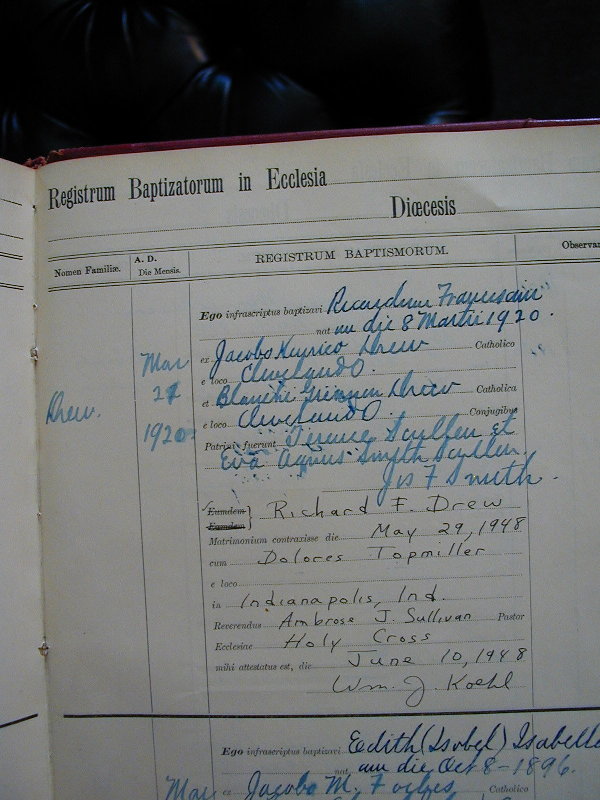 Registrum Baptizatorum in Ecclesia
Diœcesis
Nomen Familiæ. A. D. Die Mensis. REGISTRUM BAPTISMORUM. Observan
Ego infrascriptus baptizavi Ricardum Franciscum
nat um die 8 Martii 1920.
Mar ex Jacobo Henrico Drew Catholico
e loco Cleveland O.
27 et Blanche Grinnen Drew Catholica
Drew. e loco Cleveland O. Conjugibus
1920. Patrini fuerunt Terence Scullen et
Eva Agnes Smyth Scullen.
Jos F Smith.
Eumdem Richard F. Drew
Eamdem
Matrimonium contraxisse die May 29, 1948
cum Dolores Topmiller
e loco
in Indianapolis, Ind.
Reverendus Ambrose J. Sullivan Pastor
Ecclesiae Holy Cross
mihi attestatus est, die June 10, 1948
Wm. J. Koehl
Ego infrascriptus baptizavi Edith (Isobel) Isabella
nat am die Oct 8 - 1896.
May ex Jacobo M. Forbes Catholico